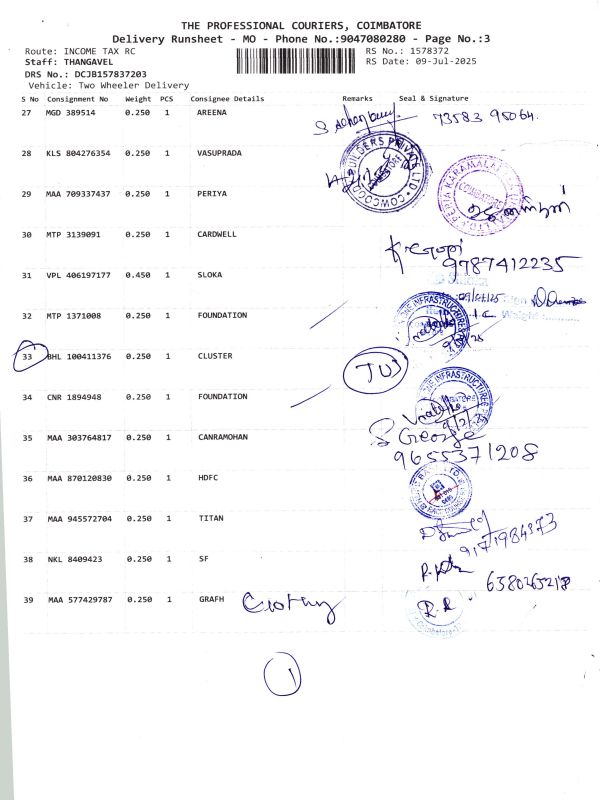 THE PROFESSIONAL COURIERS, COIMBATORE
Delivery Runsheet - MO - Phone No.:9047080280 - Page No.:3
Route: INCOME TAX RC
RS No.: 1578372
Staff: THANGAVEL
RS Date: 09-Jul-2025
DRS No.: DCJB157837203
Vehicle: Two Wheeler Delivery
S No Consignment No Weight PCS Consignee Details Remarks Seal & Signature
27 MGD 389514 0.250 1 AREENA
73583 95064
28 KLS 804276354 0.250 1 VASUPRADA
29 MAA 709337437 0.250 1 PERIYA
COIMBATORE
30 MTP 3139091 0.250 1 CARDWELL
9787412235
31 VPL 406197177 0.450 1 SLOKA
32 MTP 1371008 0.250 1 FOUNDATION
33 BHL 100411376 0.250 1 CLUSTER
34 CNR 1894948 0.250 1 FOUNDATION
35 MAA 303764817 0.250 1 CANRAMOHAN
S George
9655371208
36 MAA 870120830 0.250 1 HDFC
37 MAA 945572704 0.250 1 TITAN
38 NKL 8409423 0.250 1 SF
39 MAA 577429787 0.250 1 GRAFH
R.R
1